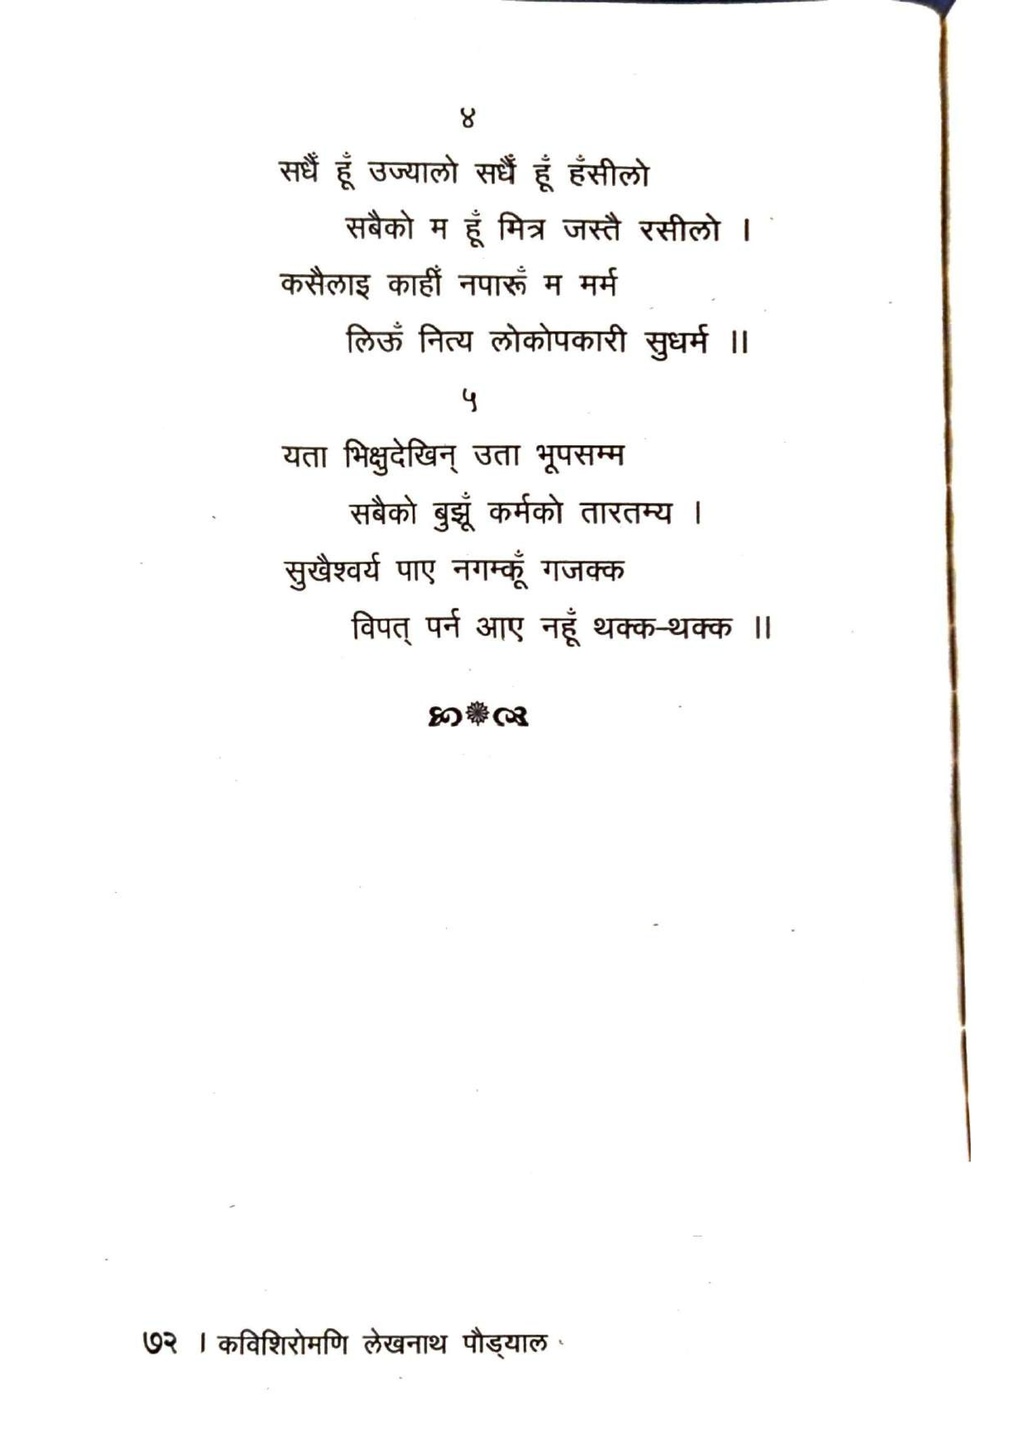 ४
सधैँ हूँ उज्यालो सधैँ हूँ हँसीलो
सबैको म हूँ मित्र जस्तै रसीलो ।
कसैलाइ काहीँ नपारूँ म मर्म
लिऊँ नित्य लोकोपकारी सुधर्म ॥
५
यता भिक्षुदेखिन् उता भूपसम्म
सबैको बुझूँ कर्मको तारतम्य ।
सुखैश्वर्य पाए नगम्कूँ गजक्क
विपत् पर्न आए नहूँ थक्क-थक्क ॥
७२ । कविशिरोमणि लेखनाथ पौड्याल